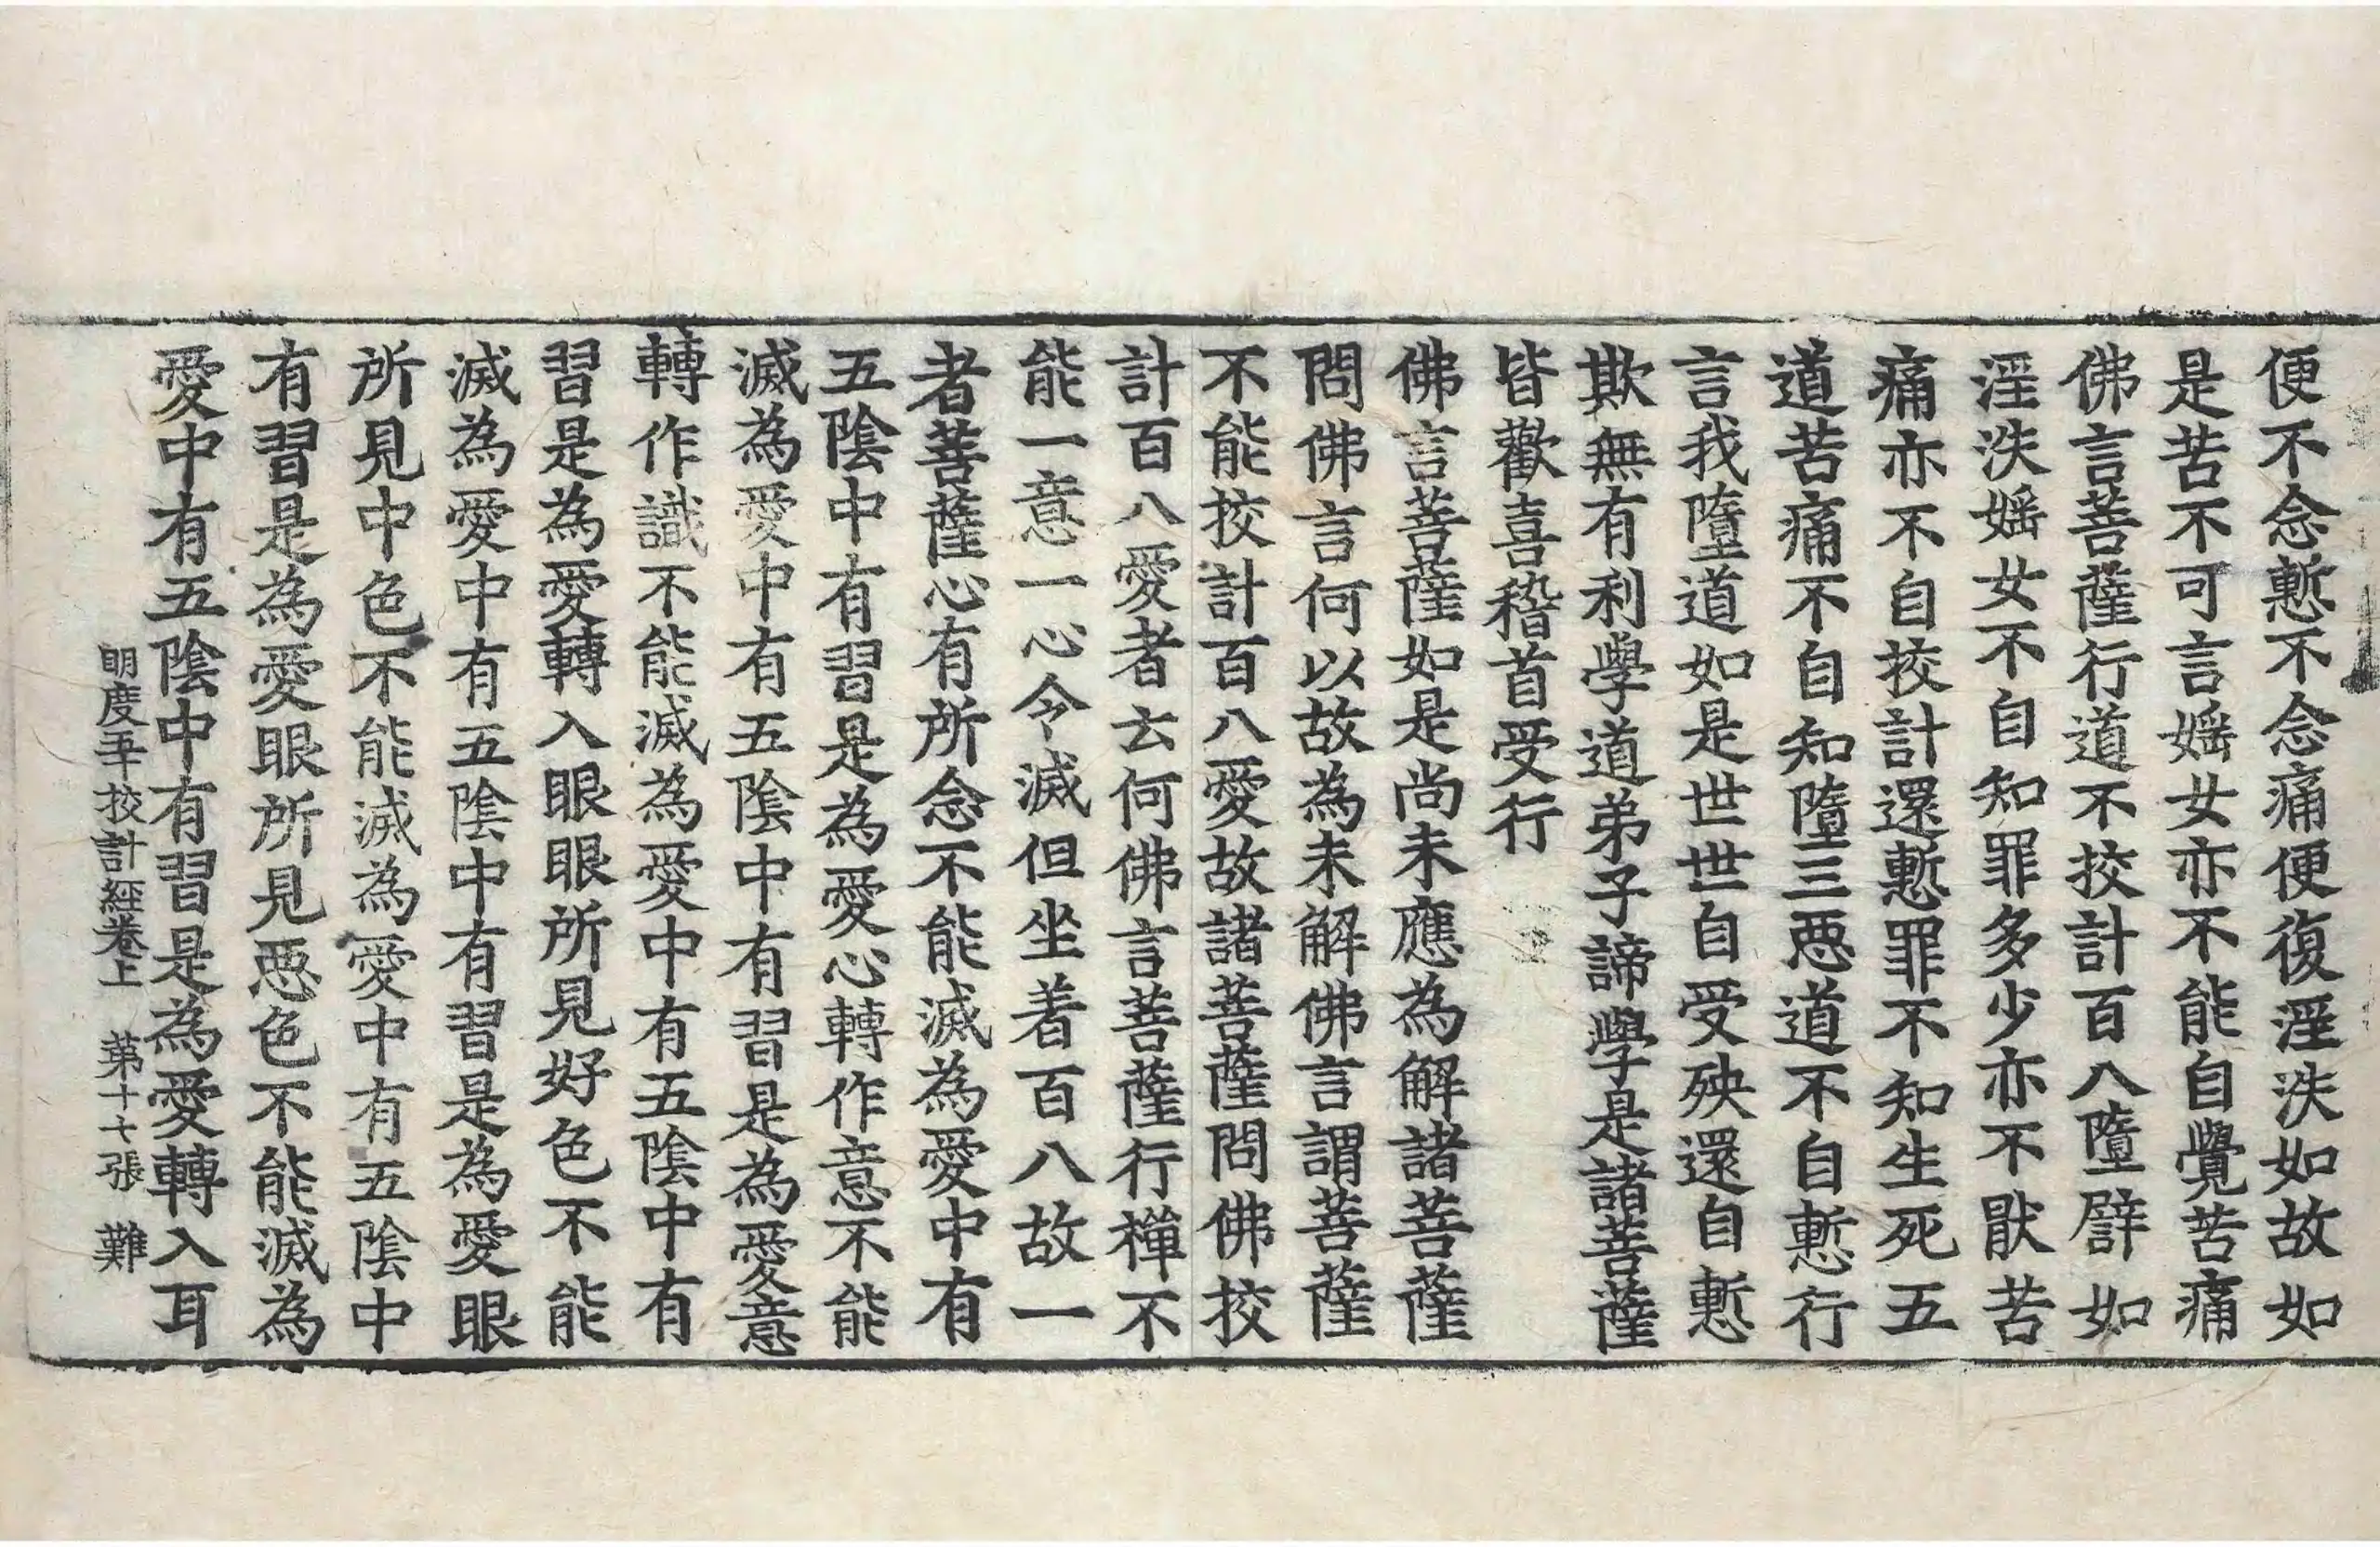 便不念慙不念痛便復淫泆如故如
是苦不可言婬女亦不能自覺苦痛
佛言菩薩行道不挍計百八墮譬如
淫泆婬女不自知罪多少亦不猒苦
痛亦不自挍計還慙罪不知生死五
道苦痛不自知墮三惡道不自慙行
言我墮道如是世世自受殃還自慙
欺無有利學道弟子諦學是諸菩薩
皆歡喜稽首受行
佛言菩薩如是尚未應為解諸菩薩
問佛言何以故為未解佛言謂菩薩
不能挍計百八愛故諸菩薩問佛挍
計百八愛者云何佛言菩薩行禪不
能一意一心令滅但坐着百八故一
者菩薩心有所念不能滅為愛中有
五陰中有習是為愛心轉作意不能
滅為愛中有五陰中有習是為愛意
轉作識不能滅為愛中有五陰中有
習是為愛轉入眼眼所見好色不能
滅為愛中有五陰中有習是為愛眼
所見中色不能滅為愛中有五陰中
有習是為愛眼所見惡色不能滅為
愛中有五陰中有習是為愛轉入耳
明度五十挍計經卷上 第十七張 難